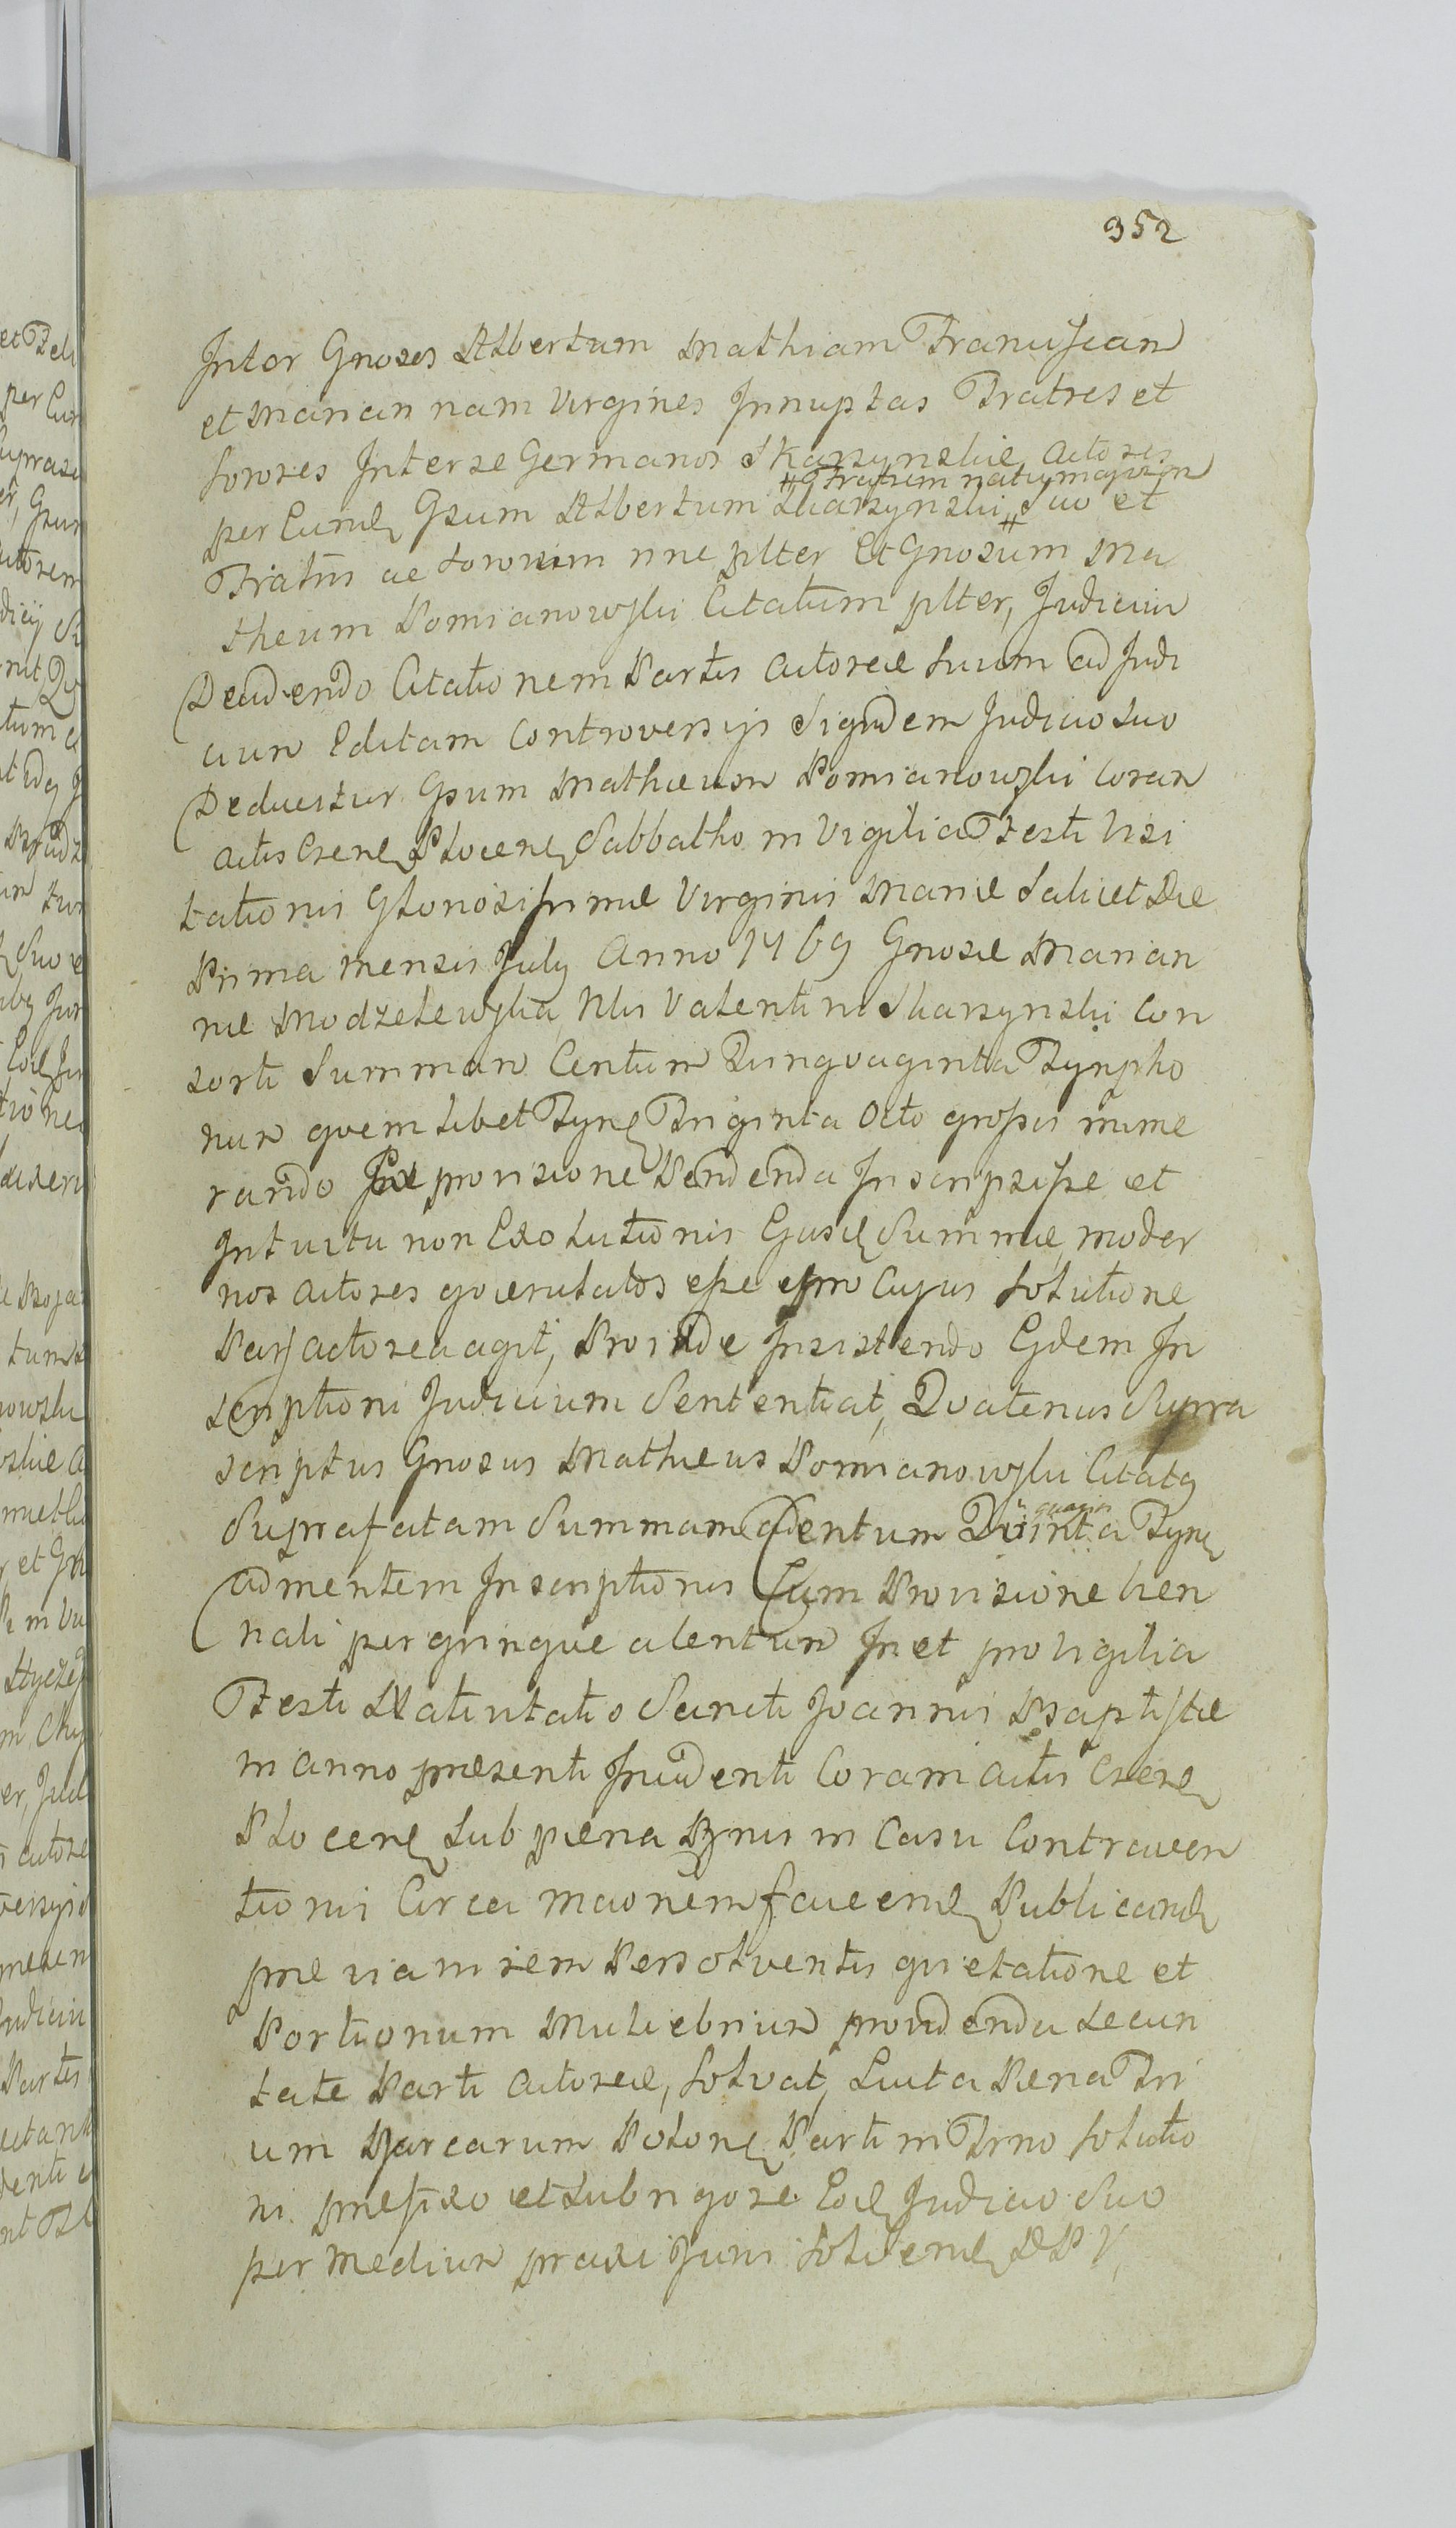 952
Inter Gnosos Albertum Mathiam Franciscam
et Marian nam Virgines Innuptas Fratres et
sorores Inter se Germanos Skarzynskie Actores
# Fratrem natu majorem
per Eund Gsum Albertum Skarzynski # Suo et
Fratris ac sororum nne plter Et Gnosum Ma
theum Pomianowski Citatum plter, Judicium
Decidendo Citationem Partis Actoreæ suum ad Judi
cium Editam Controversijs Siquidem Judicio Suo
Deducitur Gsum Mathæum Pomianowski Coram
Actis Cseñ Plocen Sabbatho in Vigilia Festi Visi
tationis Gloriosissimæ Virginis Mariæ Scilicet Die
Prima Mensis July Anno 1769 Gnosæ Marian
næ Modzelewska Nlis Valentini Skarzynski Con
sorti Summam Centum Quinqvaginta Tynpho
num qvemlibet Tynf Triginta Octo grossis nume
rando provisione Pendenda Inscripsisse et
Intuitu non Exolutionis Ejusd Summæ moder
nos Actores esse pro Cujus solutione
Pars actorea agit, Proinde Insistendo Ejdem In
scriptioni Judicium Sententiat, Qvatenus Supra
scriptus Gnosus Mathæus Pomianowski Citatg
quagin
Suprafatam Summam Centum Quinta Tynf
ad mentem Inscriptionis Cum Provisione
nali per qvinqve a Centum In et pro Vigilia
Festi Nativitatis Sancti Joannis Baptistæ
in anno præsenti Incidenti Coram Actis Csen
Plocen sub pæna in Casu Contraven
tionis Circa faciend Publicand
præviam rem Persolventis qvietatione et
Portionum Muliebrium providenda secun
tate Parti Actoreæ, solvat, Luita Pæna Tri
um Marcarum Polon Parti in Trno solutio
ni præfixo et sub rigore Eod Judicio Suo
per Medium praxi Juris solvend